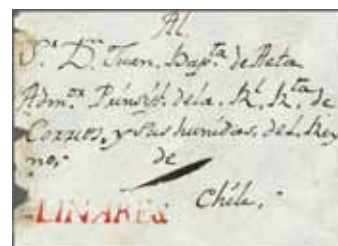 Al.
S.r D.n Juan. Bap.ta de Aeta
Adm.or Prinsip.l de la. Rl. Rta de
Correos, y sus hunidas. del Rey
no. de
Chile.
LINARES